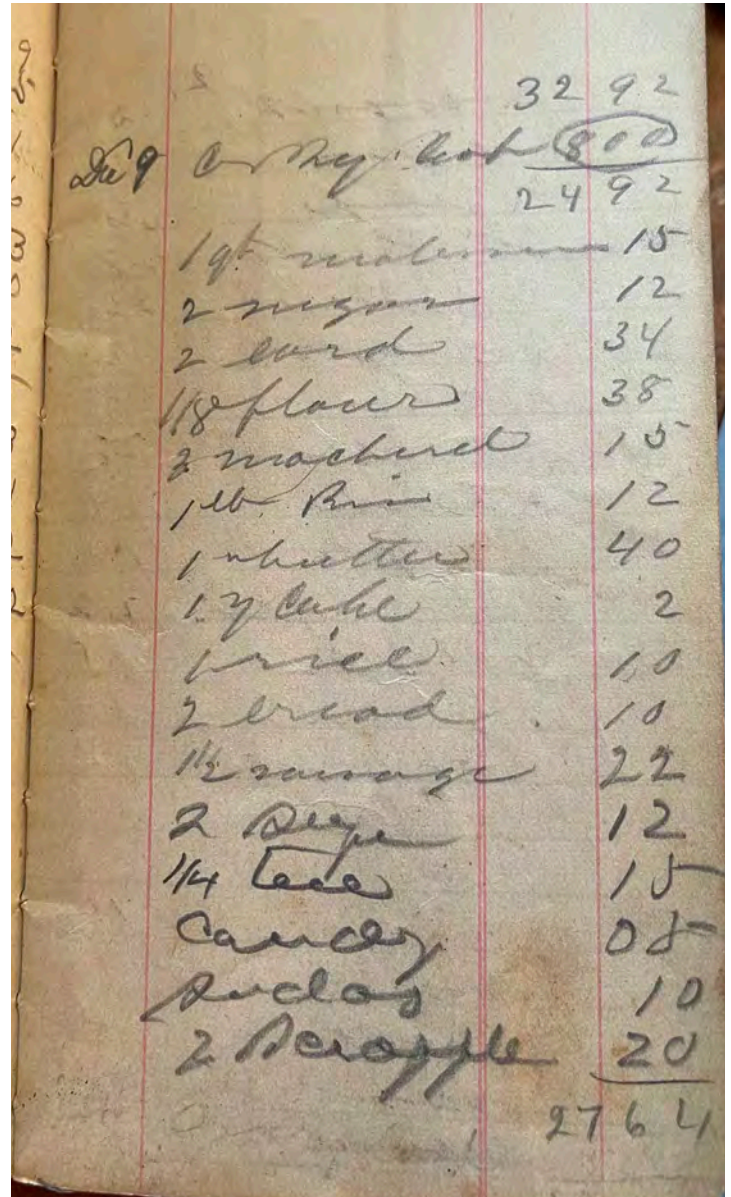 32 92
Dec 9 Cr By Cash 8 00
24 92
1 qt molasses 15
2 sugar 12
2 lard 34
1/8 flour 38
2 mackerel 15
1 lb 12
1 butter 40
1 y Cake 2
1 rice 10
2 bread 10
1 1/2 sausage 22
2 12
1/4 tea 15
Candy 05
10
2 Scrapple 20
27 64